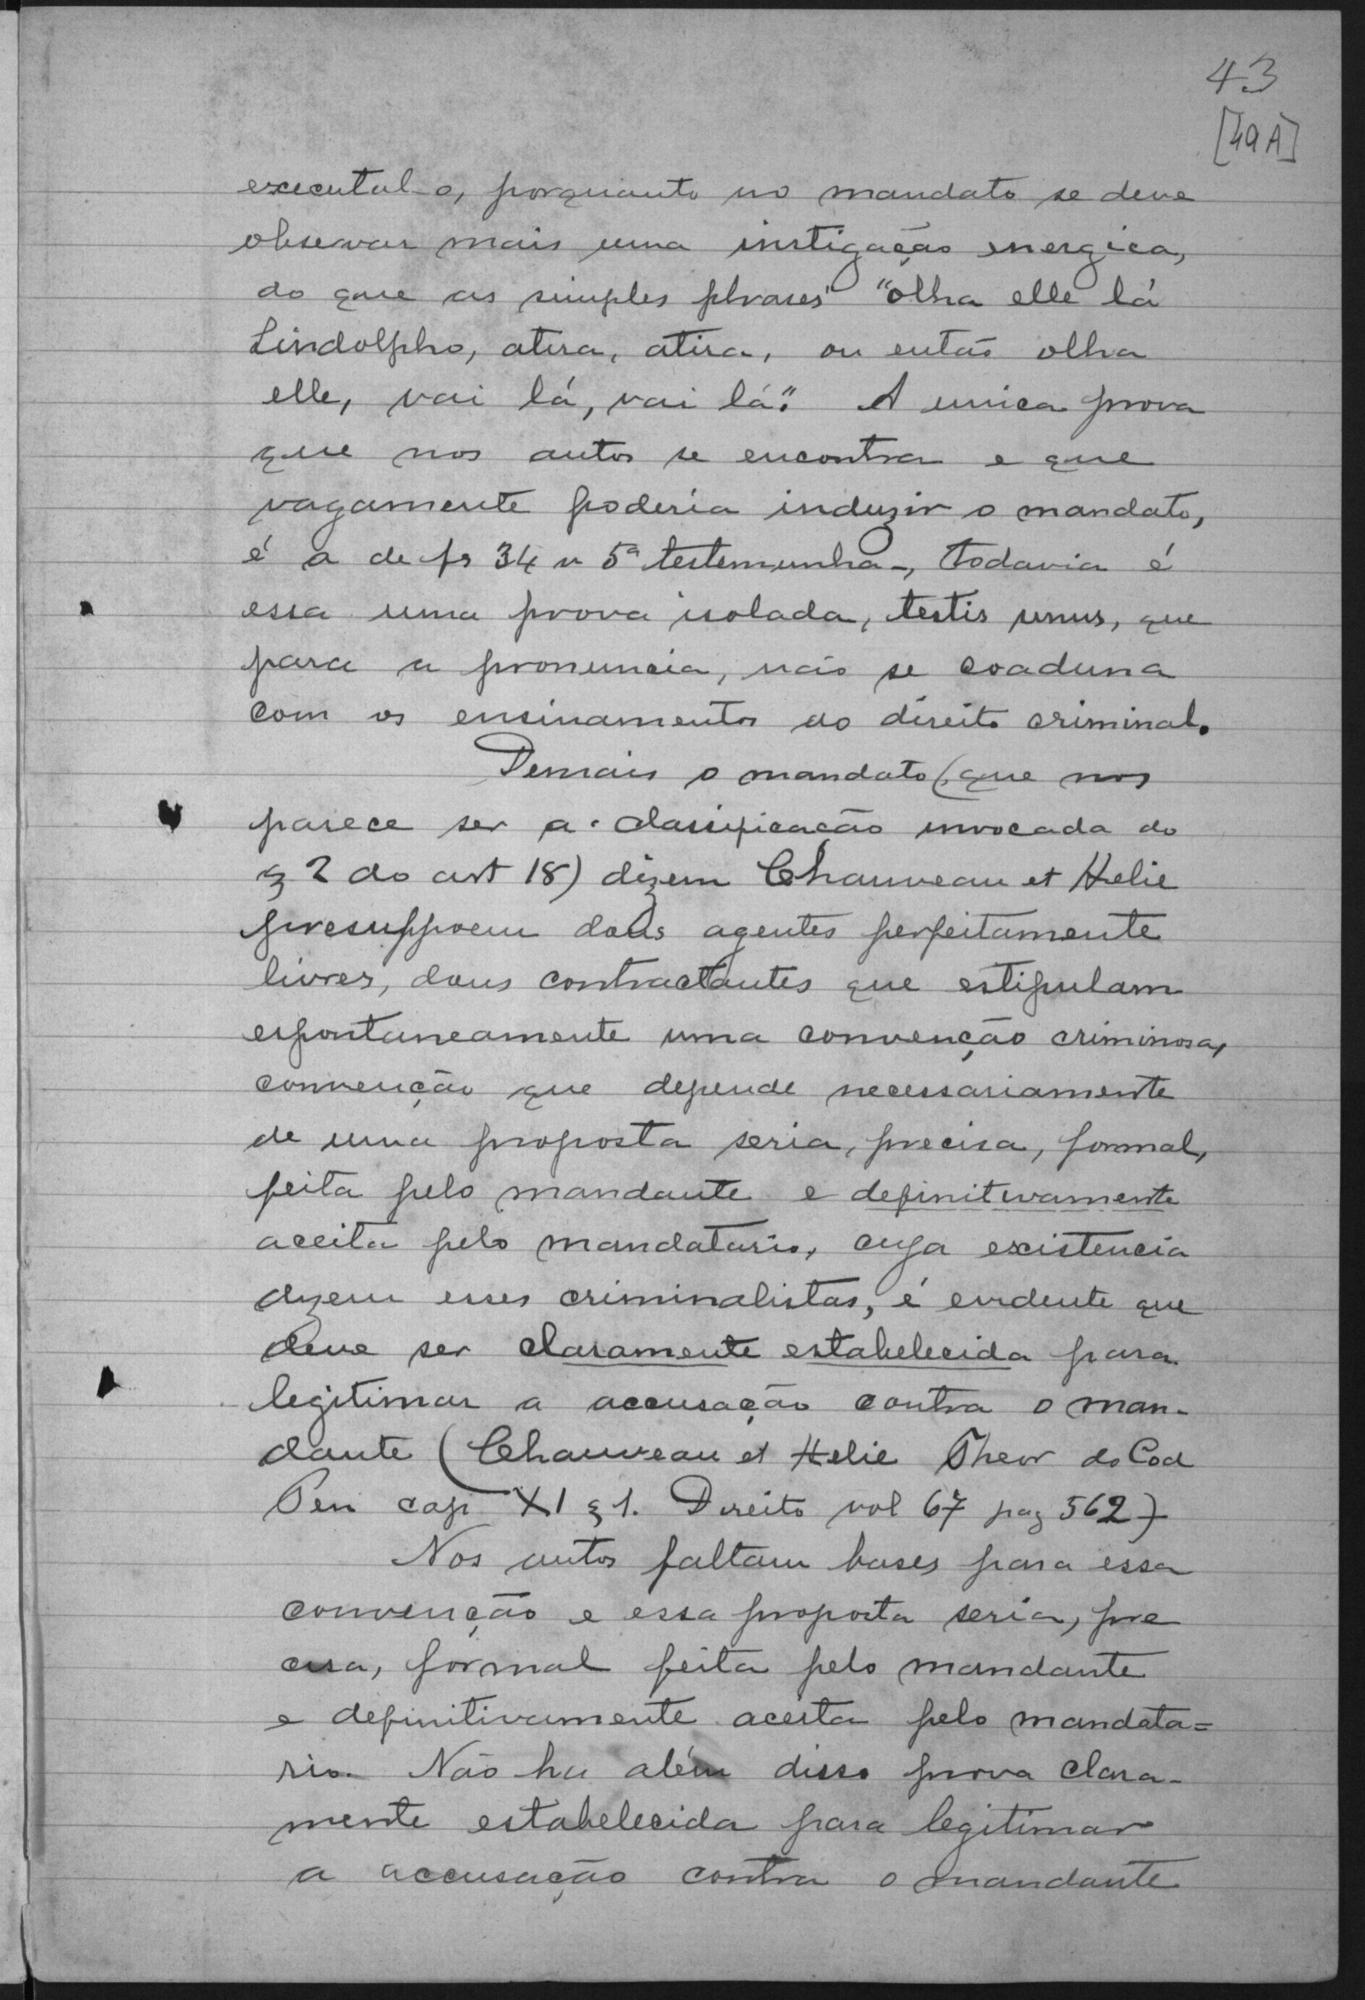 43
[49A]
executal-o, porquanto no mandato se deve
observar mais uma instigação energica,
do que as simples phrases "olha elle lá
Lindolpho, atira, atira, ou então olha
elle, vai lá, vai lá". A unica prova
que nos autos se encontra e que
vagamente poderia induzir o mandato,
é a de fs 34 v 5ª testemunha -, todavia é
essa uma prova isolada, testis unus, que
para a pronuncia, não se coaduna
com os ensinamentos do direito criminal.
Demais o mandato (que nos
parece ser a classificação invocada do
§ 2 do art 18) dizem Chauveau et Helie
presuppoem dous agentes perfeitamente
livres, dous contractantes que estipulam
espontaneamente uma convenção criminosa,
convenção que depende necessariamente
de uma proposta seria, precisa, formal,
feita pelo mandante e definitivamente
aceita pelo mandatario, cuja existencia
dizem esses criminalistas, é evidente que
deve ser claramente estabelecida para
legitimar a accusação contra o man-
dante (Chauveau et Helie Theor do Cod
Pen cap XI § 1. Direito vol 67 pag 562)
Nos autos faltam bases para essa
convenção e essa proposta seria, pre
cisa, formal feita pelo mandante
e definitivamente aceita pelo mandata=
rio. Não ha além disso prova clara-
mente estabelecida para legitimar
a accusação contra o mandante